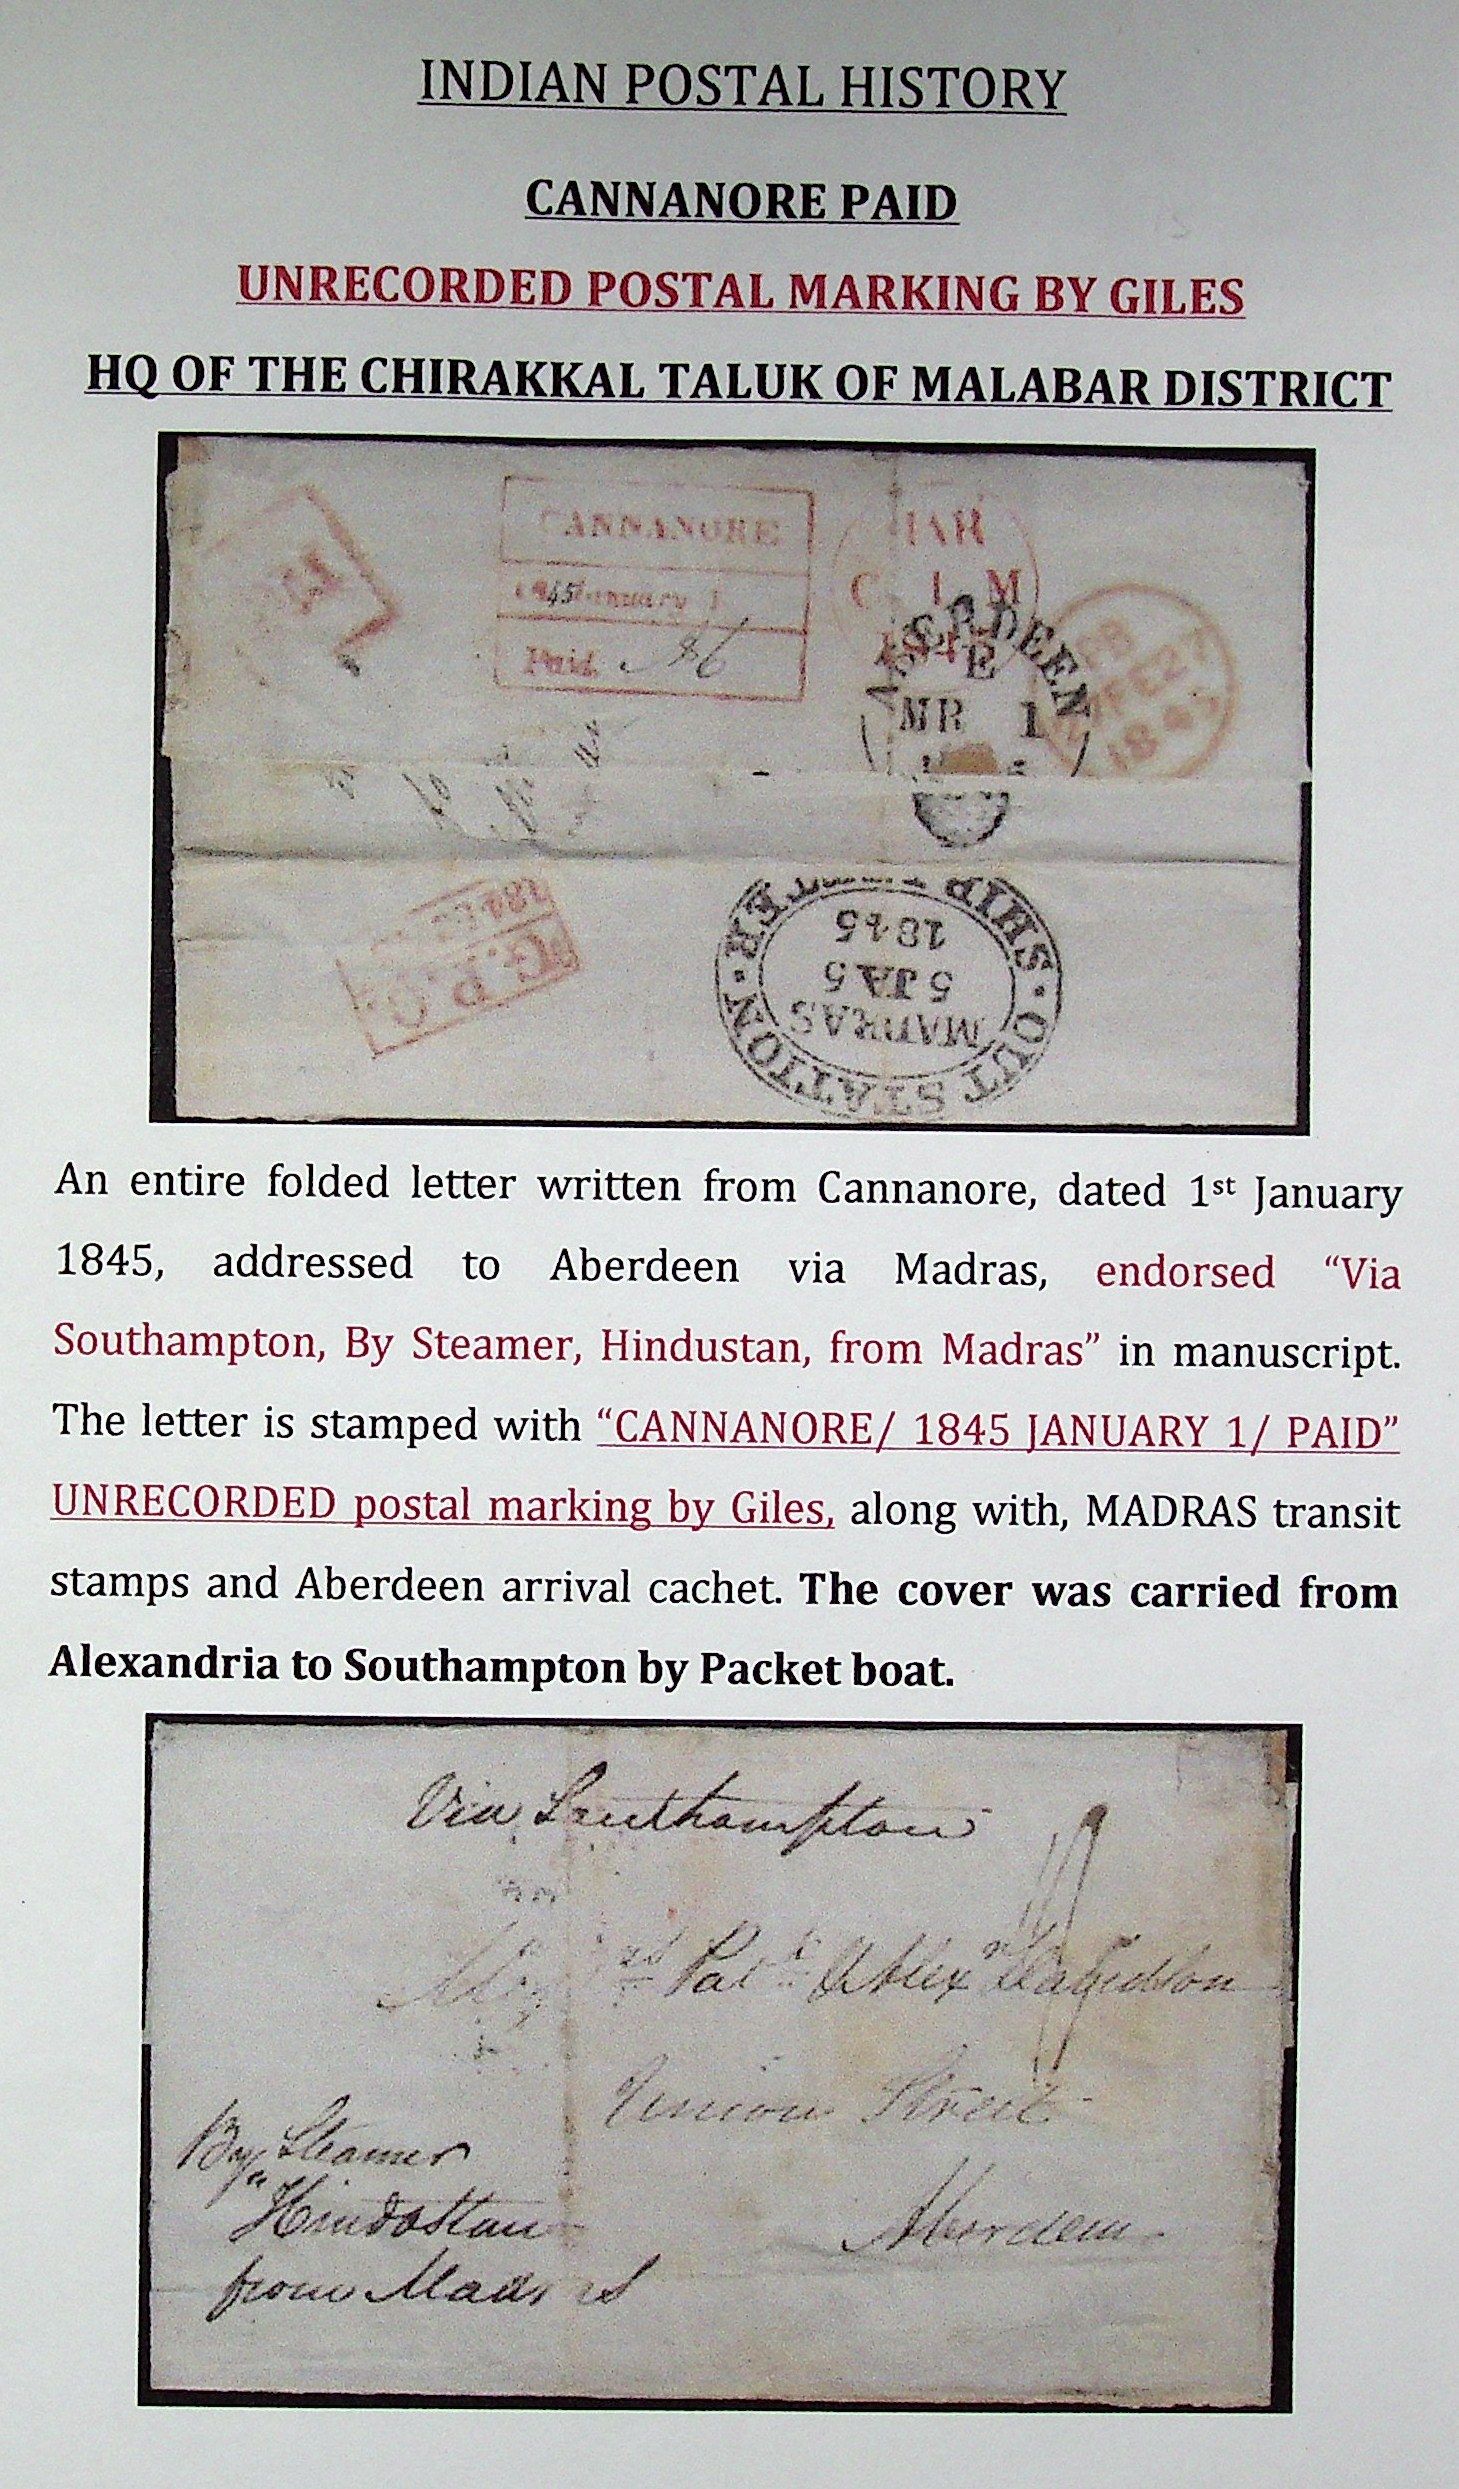 INDIAN POSTAL HISTORY
CANNANORE PAID
UNRECORDED POSTAL MARKING BY GILES
HQ OF THE CHIRAKKAL TALUK OF MALABAR DISTRICT
CANNANORE
1845 January 1
Paid
MAR
1
M
1845
ABERDEEN
E
MR 1
FE 27
1845
G.P.O.
184
SHIP LETTER · OUT STATION ·
MADRAS
5 JA 5
1845
An entire folded letter written from Cannanore, dated 1st January
1845, addressed to Aberdeen via Madras, endorsed “Via
Southampton, By Steamer, Hindustan, from Madras” in manuscript.
The letter is stamped with “CANNANORE/ 1845 JANUARY 1/ PAID”
UNRECORDED postal marking by Giles, along with, MADRAS transit
stamps and Aberdeen arrival cachet. The cover was carried from
Alexandria to Southampton by Packet boat.
Via Southampton
Alexr Davidson
Union Street
Aberdeen
By Steamer
"Hindostan
from Madras